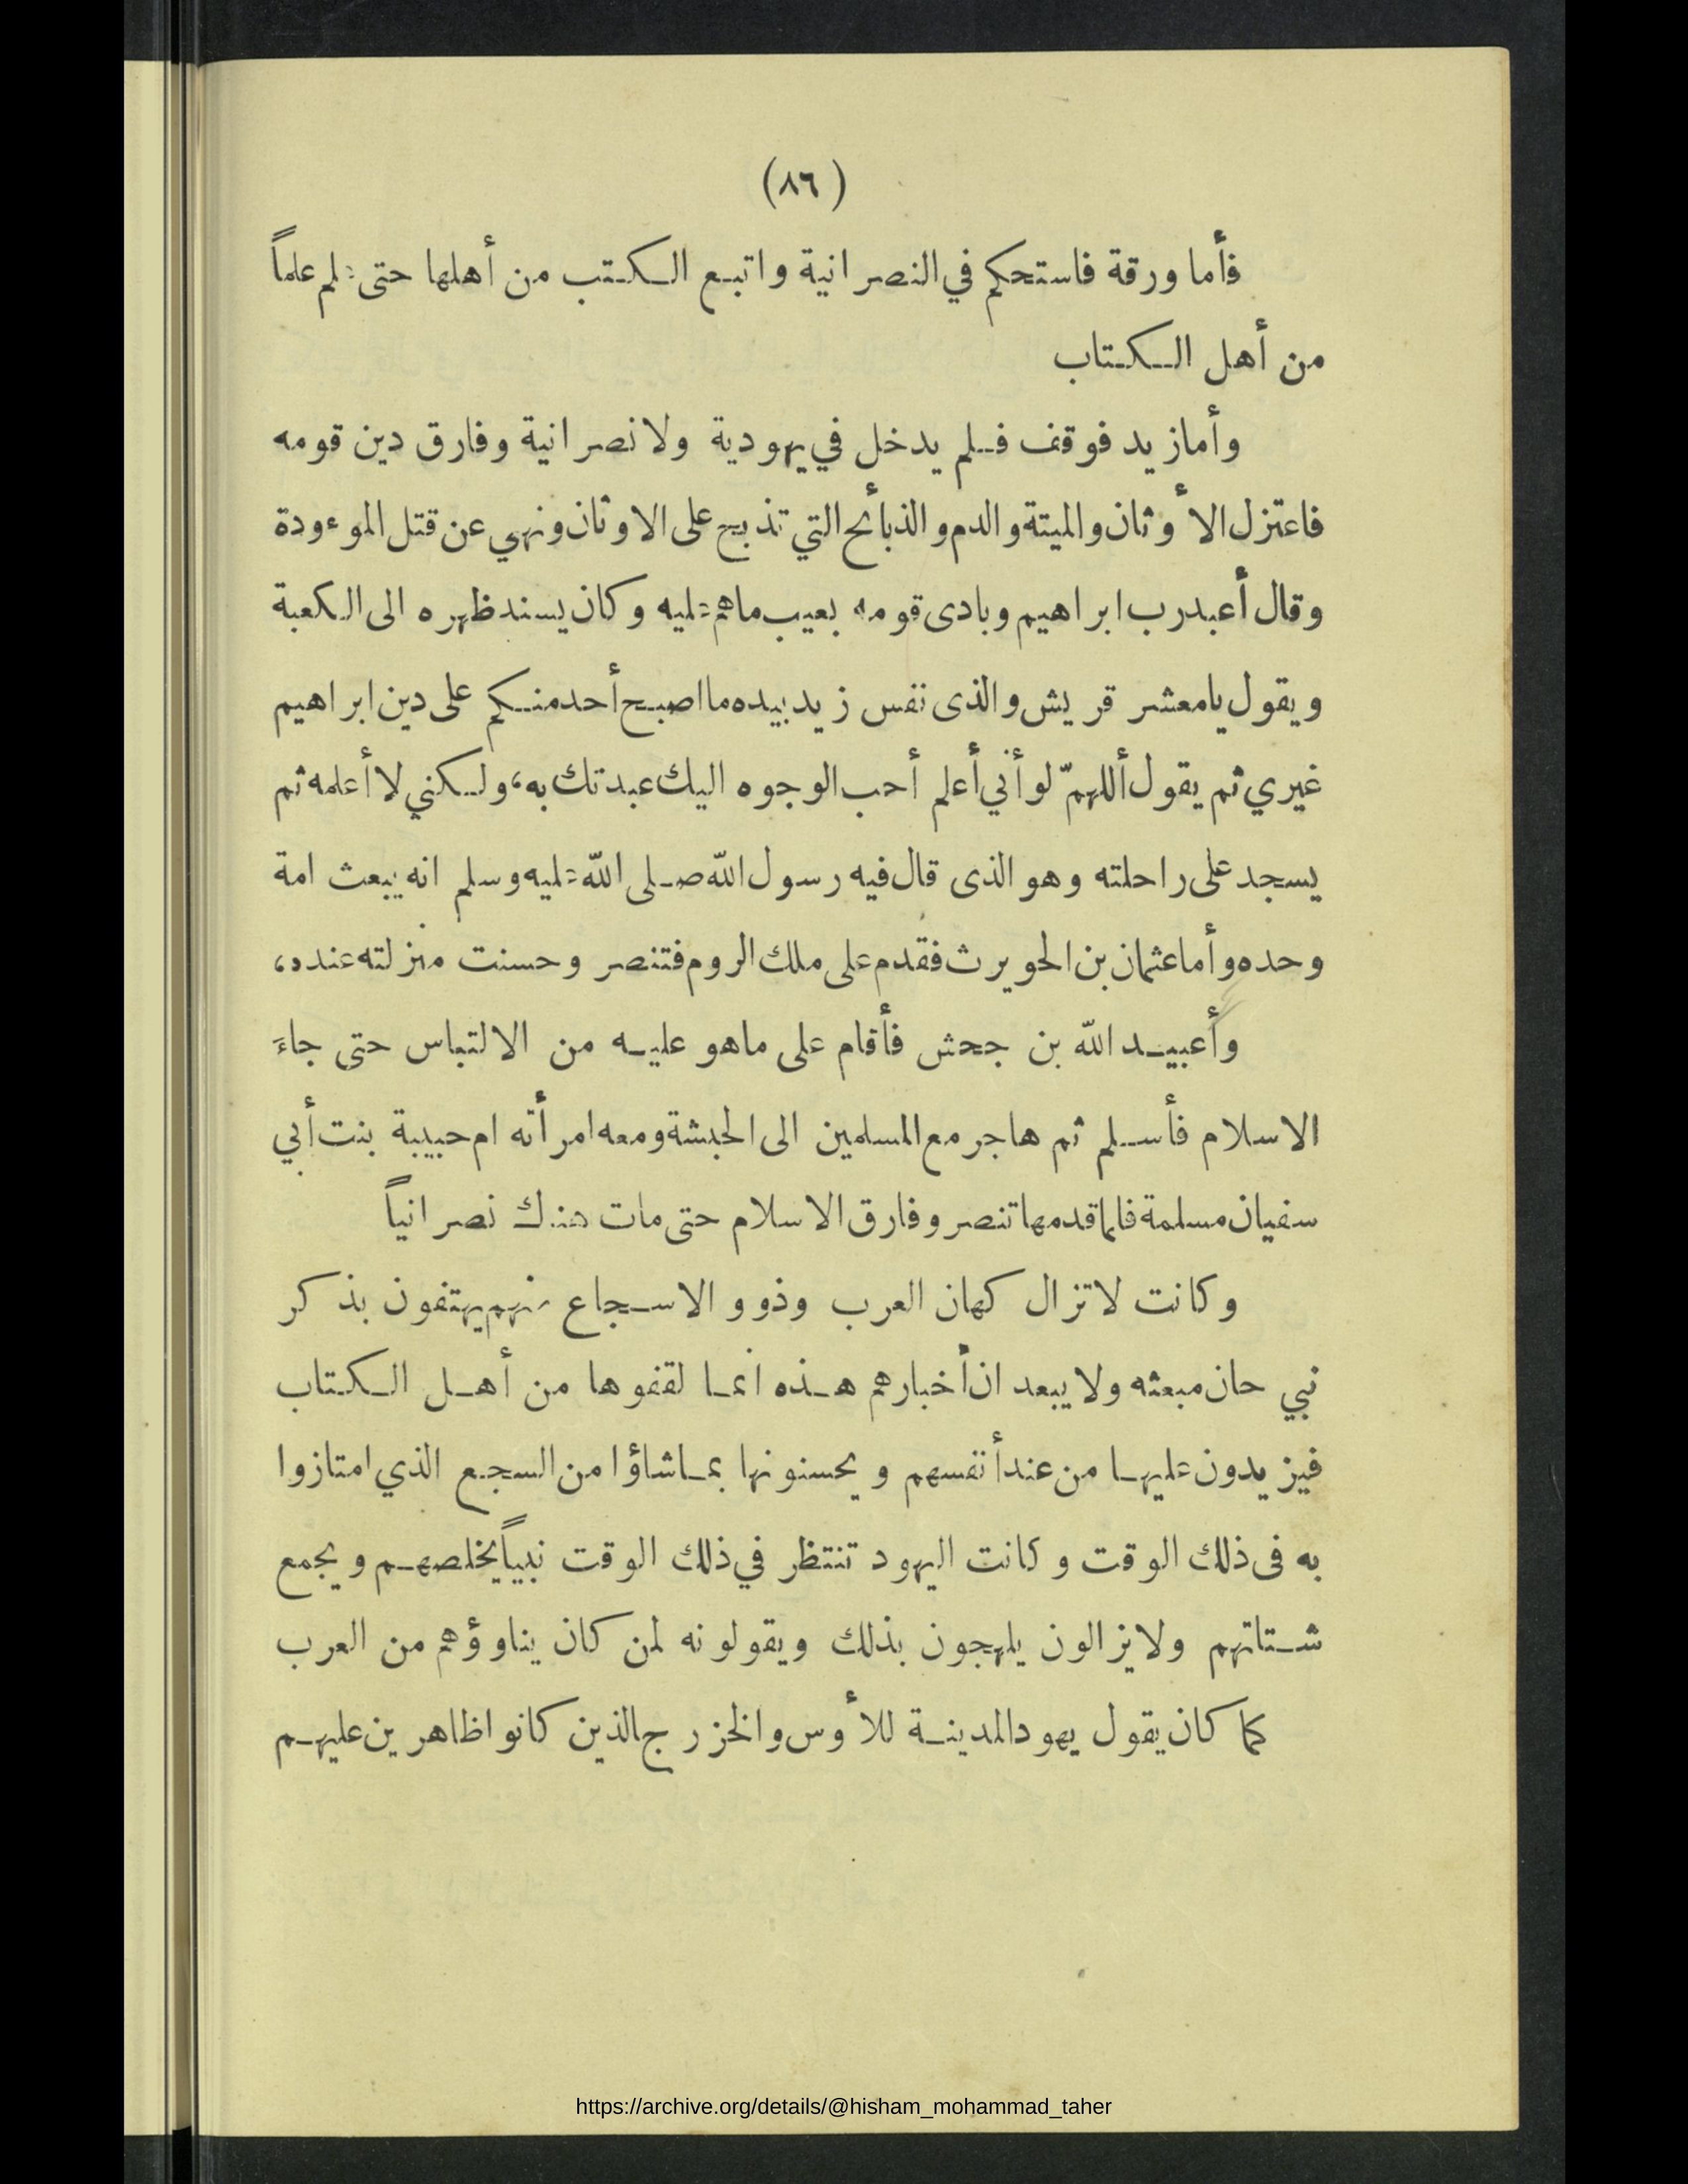 (٨٦)
فأما ورقة فاستحكم في النصرانية واتبع الكتب من أهلها حتى علم علماً
من أهل الكتاب
وأما زيد فوقف فلم يدخل في يهودية ولا نصرانية وفارق دين قومه
فاعتزل الأوثان والميتة والدم والذبائح التي تذبح على الاوثان ونهي عن قتل الموءودة
وقال أعبد رب ابراهيم وبادى قومه بعيب ماهم عليه وكان يسند ظهره الى الكعبة
ويقول يامعشر قريش والذى نفس زيد بيده ما اصبح أحد منكم على دين ابراهيم
غيري ثم يقول أللهمّ لو أني أعلم أحب الوجوه اليك عبدتك به، ولكني لا أعلمه ثم
يسجد على راحلته وهو الذى قال فيه رسول الله صلى الله عليه وسلم انه يبعث امة
وحده وأما عثمان بن الحويرث فقدم على ملك الروم فتنصر وحسنت منزلته عنده،
وأعبيد الله بن جحش فأقام على ماهو عليه من الالتباس حتى جاءَ
الاسلام فأسلم ثم هاجر مع المسلمين الى الحبشة ومعه امرأته ام حبيبة بنت أبي
سفيان مسلمة فلما قدمها تنصر وفارق الاسلام حتى مات هنك نصرانياً
وكانت لاتزال كهان العرب وذوو الاسجاع منهم يهتفون بذكر
نبي حان مبعثه ولا يبعد ان أخبارهم هذه انما لقفوها من أهل الكتاب
فيزيدون عليها من عند أنفسهم ويحسنونها بماشاؤا من السجع الذي امتازوا
به فى ذلك الوقت وكانت اليهود تنتظر في ذلك الوقت نبياً يخلصهم ويجمع
شتاتهم ولايزالون يلهجون بذلك ويقولونه لمن كان يناوؤهم من العرب
كما كان يقول يهود المدينة للأوس والخزرج الذين كانوا ظاهرين عليهم
https://archive.org/details/@hisham_mohammad_taher